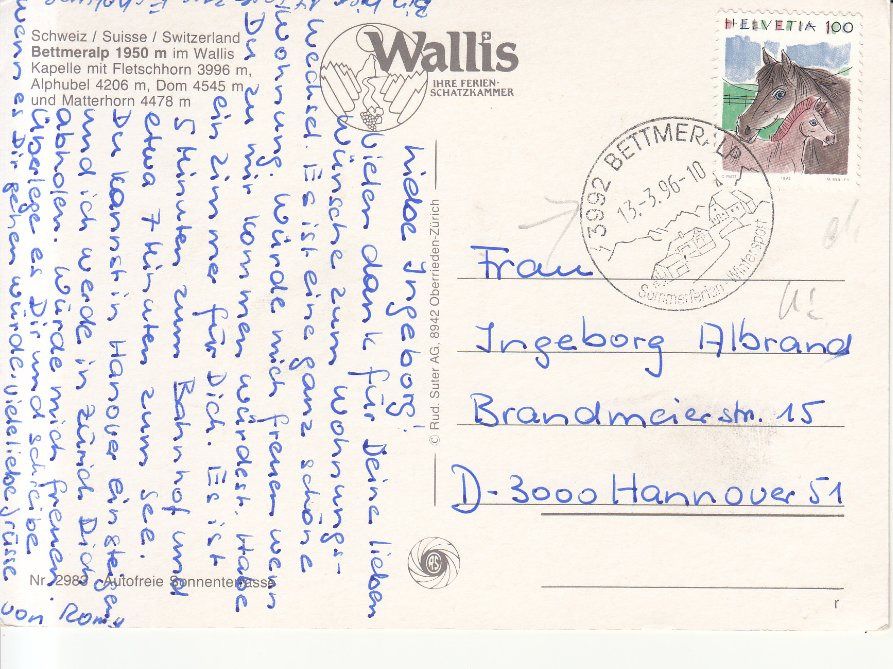 Schweiz / Suisse / Switzerland
Bettmeralp 1950 m im Wallis
Kapelle mit Fletschhorn 3996 m,
Alphubel 4206 m, Dom 4545 m
und Matterhorn 4478 m
Wallis
IHRE FERIEN-
SCHATZKAMMER
HELVETIA 100
3992 BETTMERALP
13.-3.96-10
Sommerferien - Wintersport
Liebe Ingeborg!
Vielen dank für Deine lieben
wünsche zum wohnungs-
wechsel. Es ist eine ganz schöne
Wohnung. Würde mich freuen wen
Du zu mir kommen würdest. Habe
ein zimmer für Dich. Es ist
5 Minuten zum Bahnhof und
etwa 7 Minuten zum See.
Du kannst in Hanover einsteigen
und ich werde in Zürich Dich
abholen. Würde mich freuen.
Überlege es Dir und schreibe
wenn es Dir gehen würde. viele liebe grüsse
von Romy
© Rud. Suter AG, 8942 Oberrieden-Zürich
Frau
Ingeborg Albrand
Brandmeierstr. 15
D-3000 Hannover 51
Nr. 2983 - Autofreie Sonnenterrasse
r